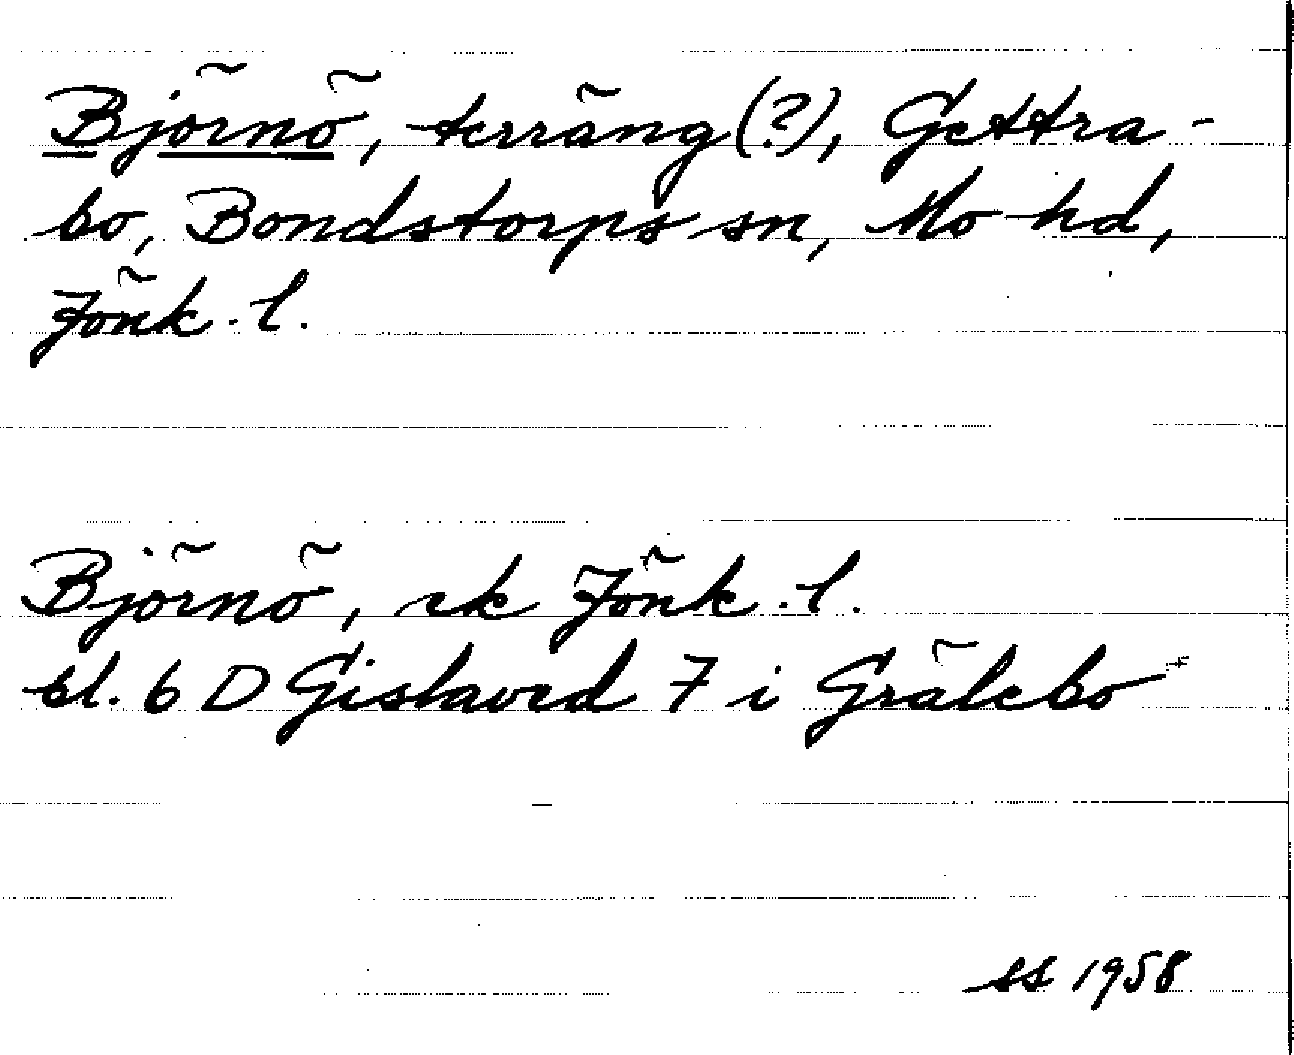 Björnö, terräng (?), Gettra-
bo, Bondstorps sn, Mo hd,
Jönk. l.
Björnö, ek Jönk. l.
bl. 6 D Gislaved 7 i Grälebo
ss 1958